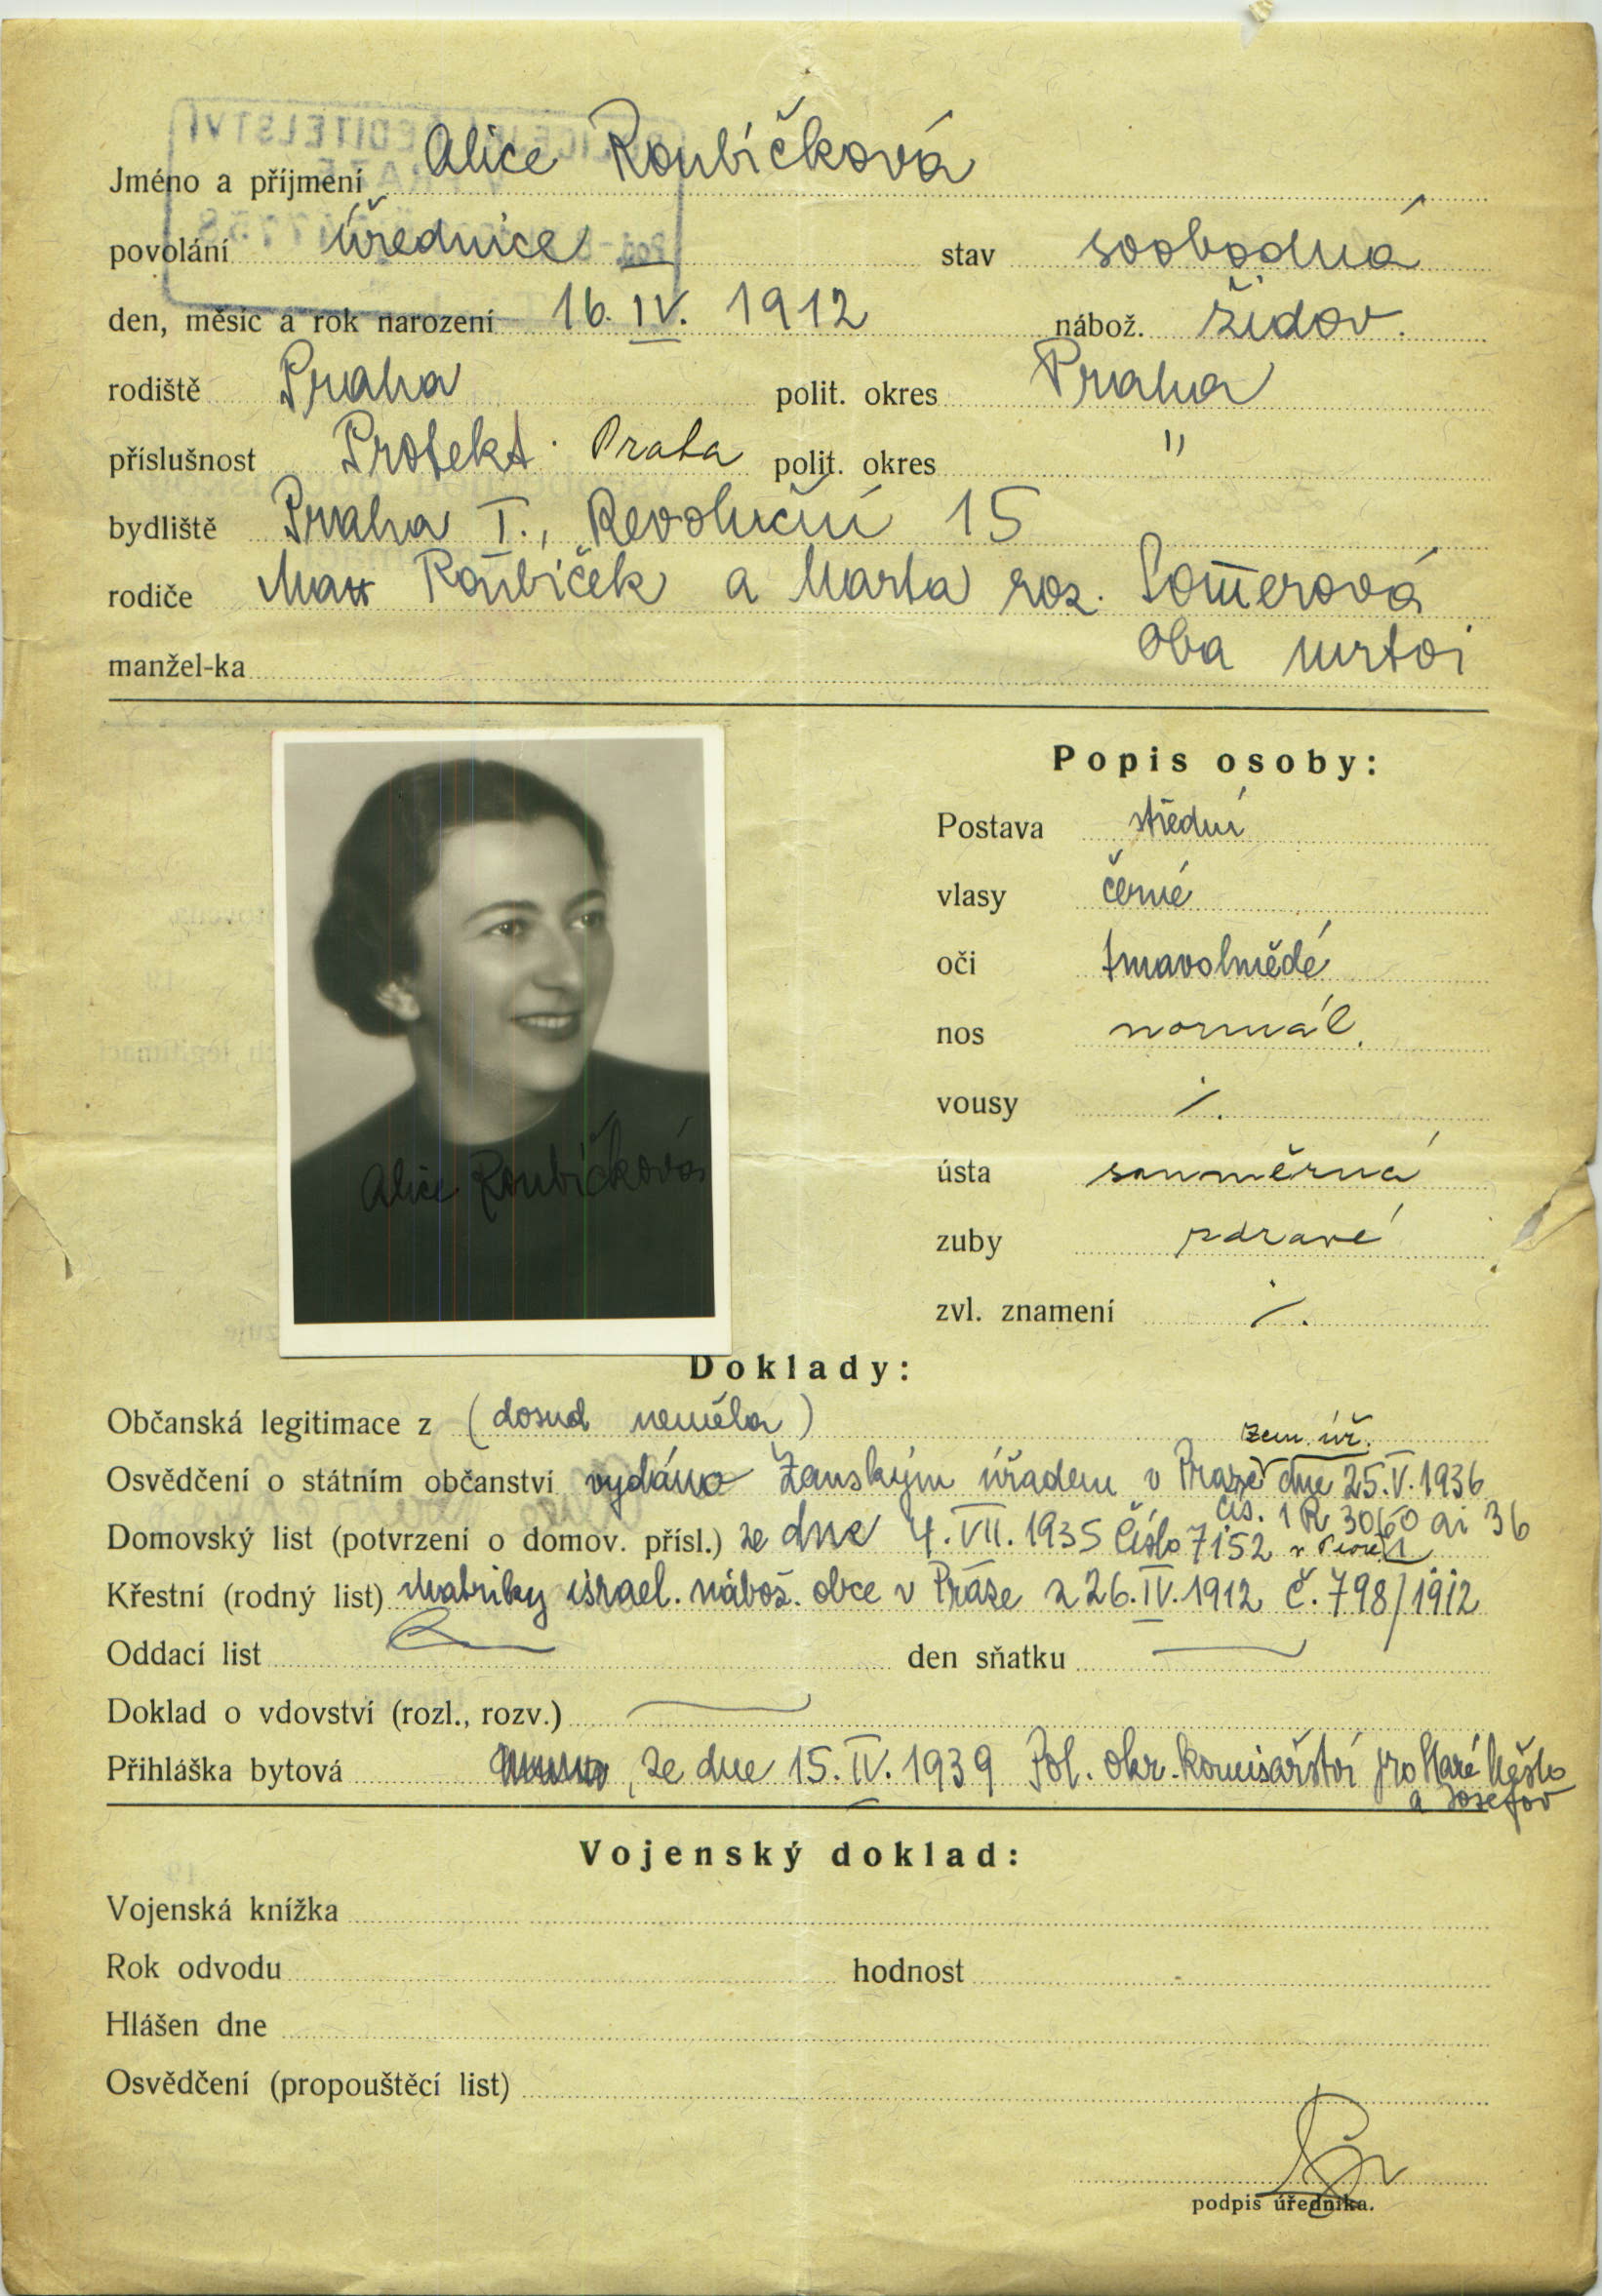 Jméno a příjmení Alice Roubíčková
povolání úřednice stav svobodná
den, měsíc a rok narození 16. IV. 1912 nábož. židov.
rodiště Praha polit. okres Praha
příslušnost Protekt. Praha polit. okres "
bydliště Praha I., Revoluční 15
rodiče Max Roubíček a Marta roz. Som̅erová
oba mrtvi
manžel-ka
Popis osoby:
Postava střední
vlasy černé
oči tmavohnědé
nos normál.
vousy /.
ústa souměrná
zuby zdravé
zvl. znamení /.
Alice Roubíčková
Doklady:
Občanská legitimace z (dosud neměla)
zem. úř.
Osvědčení o státním občanství vydáno Zemským úřadem v Praze dne 25. V. 1936
čís. 1 R 3060 ai 36
Domovský list (potvrzení o domov. přísl.) ze dne 4. VII. 1935 Číslo 7152 v
Křestní (rodný list) Matriky israel. nábož. obce v Praze z 26. IV. 1912 č. 798/1912
Oddací list den sňatku
Doklad o vdovství (rozl., rozv.)
Přihláška bytová , ze dne 15. IV. 1939 Pol. okr. komisařství pro Staré Město
a Josefov
Vojenský doklad:
Vojenská knížka
Rok odvodu hodnost
Hlášen dne
Osvědčení (propouštěcí list)
podpis úředníka.